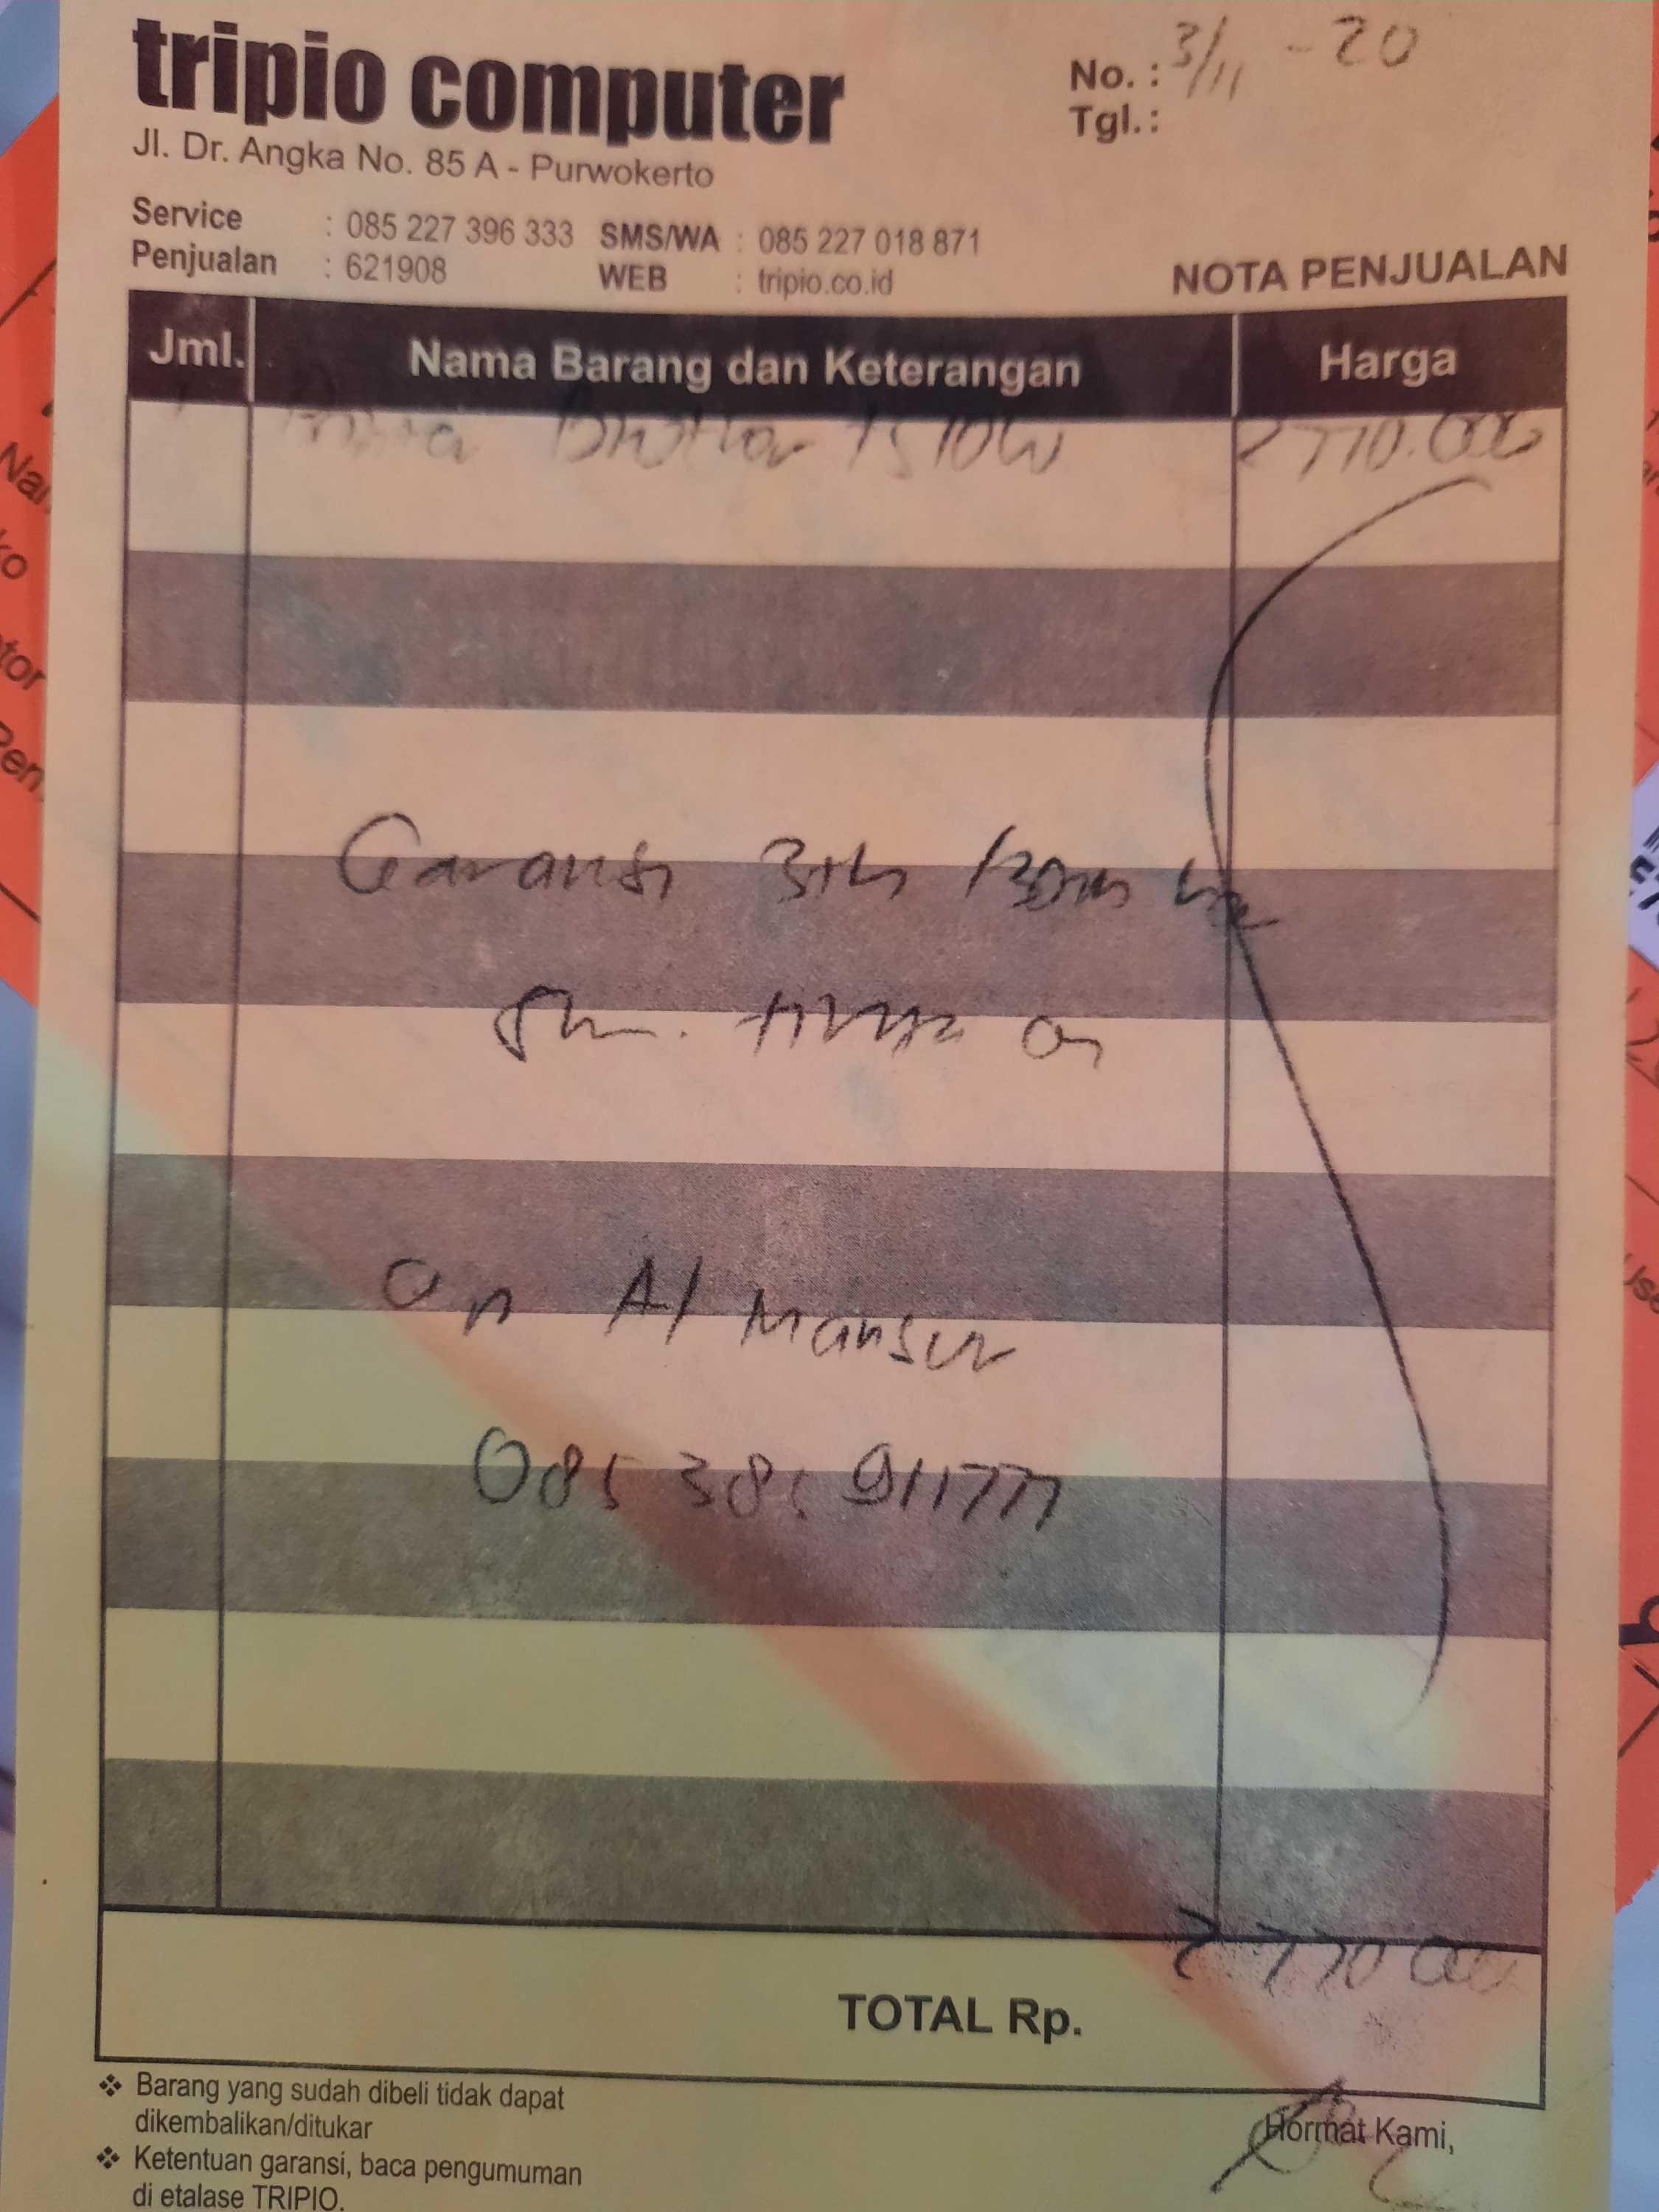 tripio computer
Jl. Dr. Angka No. 85 A - Purwokerto
No. : 3/11 - 20
Tgl. :
Service : 085 227 396 333 SMS/WA : 085 227 018 871
Penjualan : 621908 WEB : tripio.co.id
NOTA PENJUALAN
Jml. Nama Barang dan Keterangan Harga
T510W 2770.000
Garansi 3th
On Al Mansur
085 385 911777
2 770 000
TOTAL Rp.
❖ Barang yang sudah dibeli tidak dapat
dikembalikan/ditukar
❖ Ketentuan garansi, baca pengumuman
di etalase TRIPIO.
Hormat Kami,